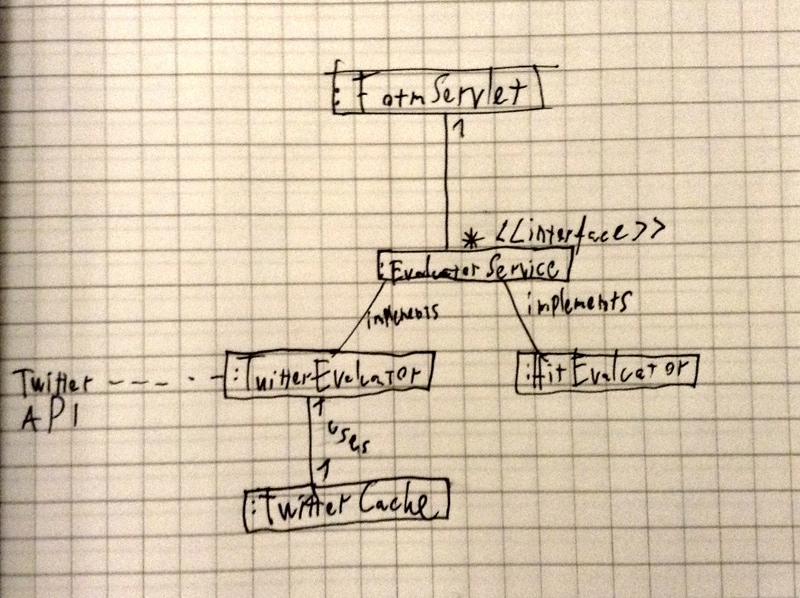 : FormServlet
1
* <<interface>>
:EvaluatorService
implements
implements
Twitter
API
:TwitterEvaluator
:HitEvaluator
1
uses
1
:TwitterCache